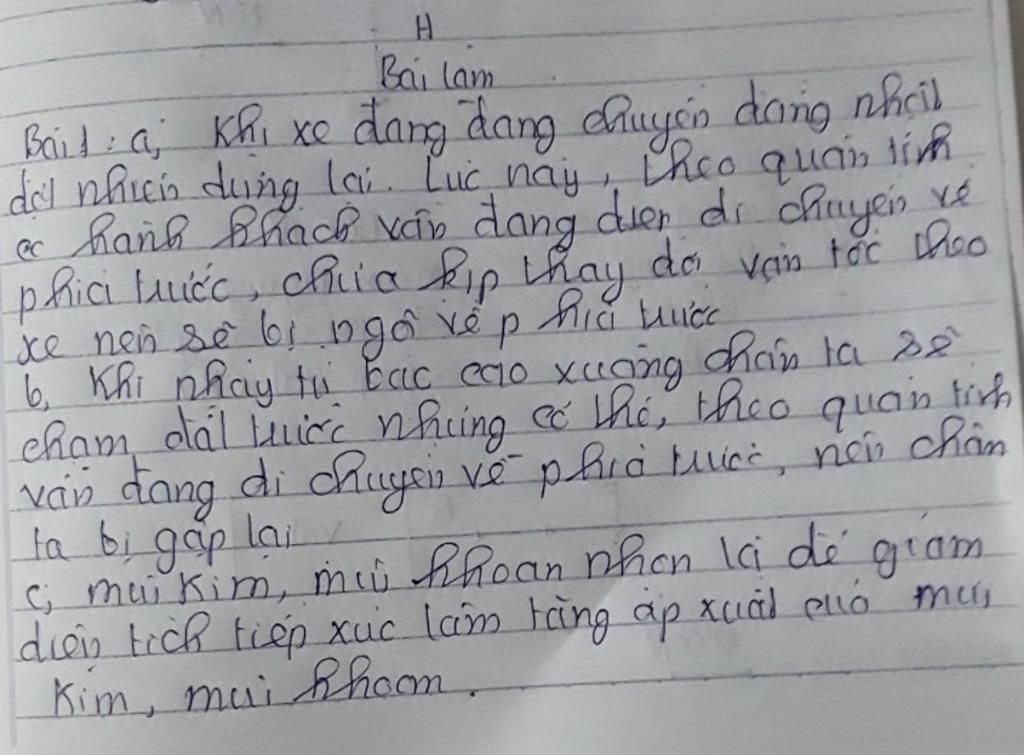 H
Bài làm
Bài 1: a, Khi xe đang đang chuyển động nhất
đột nhiên dừng lại. Lúc này, theo quán tính
hành khách vẫn đang di chuyển về
phía trước, chưa kịp thay đổi vận tốc theo
xe nên sẽ bị ngã về phía trước
b, Khi nhảy từ bậc cao xuống chân ta sẽ
chạm đất trước nhưng cơ thể, theo quán tính
vẫn đang di chuyển về phía trước, nên chân
ta bị gập lại
c, mũi kim, mũi khoan nhọn là để giảm
diện tích tiếp xúc làm tăng áp xuất của mũi
kim, mũi khoan.